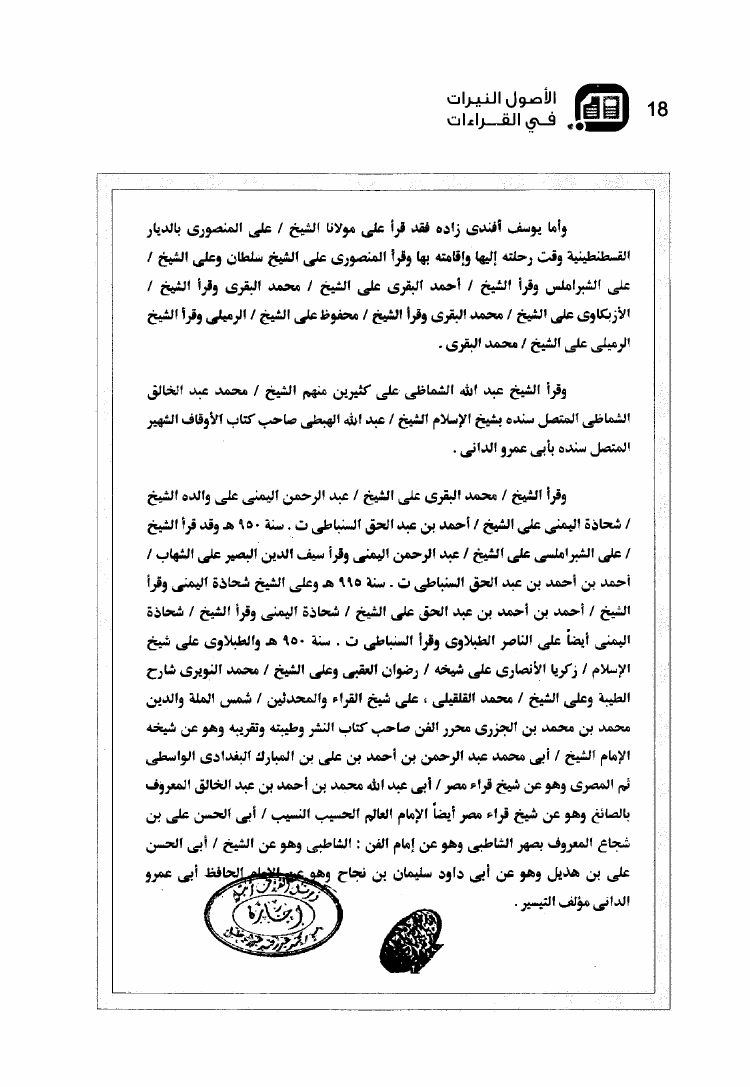 الأصول النيرات
في القراءات
18
وأما يوسف أفندى زاده فقد قرأ على مولانا الشيخ / على المنصورى بالديار
القسطنطينية وقت رحلته إليها وإقامته بها وقرأ المنصورى على الشيخ سلطان وعلى الشيخ /
على الشبراملس وقرأ الشيخ / أحمد البقرى على الشيخ / محمد البقرى وقرأ الشيخ /
الأزبكاوى على الشيخ / محمد البقرى وقرأ الشيخ / محفوظ على الشيخ / الرميلى وقرأ الشيخ
الرميلى على الشيخ / محمد البقرى .
وقرأ الشيخ عبد الله الشماظى على كثيرين منهم الشيخ / محمد عبد الخالق
الشماظى المتصل سنده بشيخ الإسلام الشيخ / عبد الله الهبطى صاحب كتاب الأوقاف الشهير
المتصل سنده بأبى عمرو الدانى .
وقرأ الشيخ / محمد البقرى على الشيخ / عبد الرحمن اليمنى على والده الشيخ
/ شحاذة اليمنى على الشيخ / أحمد بن عبد الحق السنباطى ت . سنة ٩٥٠ هـ وقد قرأ الشيخ
/ على الشبراملسى على الشيخ / عبد الرحمن اليمنى وقرأ سيف الدين البصير على الشهاب /
أحمد بن أحمد بن عبد الحق السنباطى ت . سنة ٩٩٥ هـ وعلى الشيخ شحاذة اليمنى وقرأ
الشيخ / أحمد بن أحمد بن عبد الحق على الشيخ / شحاذة اليمنى وقرأ الشيخ / شحاذة
اليمنى أيضاً على الناصر الطبلاوى وقرأ السنباطى ت . سنة ٩٥٠ هـ والطبلاوى على شيخ
الإسلام / زكريا الأنصارى على شيخه / رضوان العقبى وعلى الشيخ / محمد النويرى شارح
الطيبة وعلى الشيخ / محمد القلقيلى ، على شيخ القراء والمحدثين / شمس الملة والدين
محمد بن محمد بن الجزرى محرر الفن صاحب كتاب النشر وطيبته وتقريبه وهو عن شيخه
الإمام الشيخ / أبى محمد عبد الرحمن بن أحمد بن على بن المبارك البغدادى الواسطى
ثم المصرى وهو عن شيخ قراء مصر / أبى عبد الله محمد بن أحمد بن عبد الخالق المعروف
بالصائغ وهو عن شيخ قراء مصر أيضاً الإمام العالم الحسيب النسيب / أبى الحسن على بن
شجاع المعروف بصهر الشاطبى وهو عن إمام الفن : الشاطبى وهو عن الشيخ / أبى الحسن
على بن هذيل وهو عن أبى داود سليمان بن نجاح وهو عن الإمام الحافظ أبى عمرو
الدانى مؤلف التيسير .
إجازة